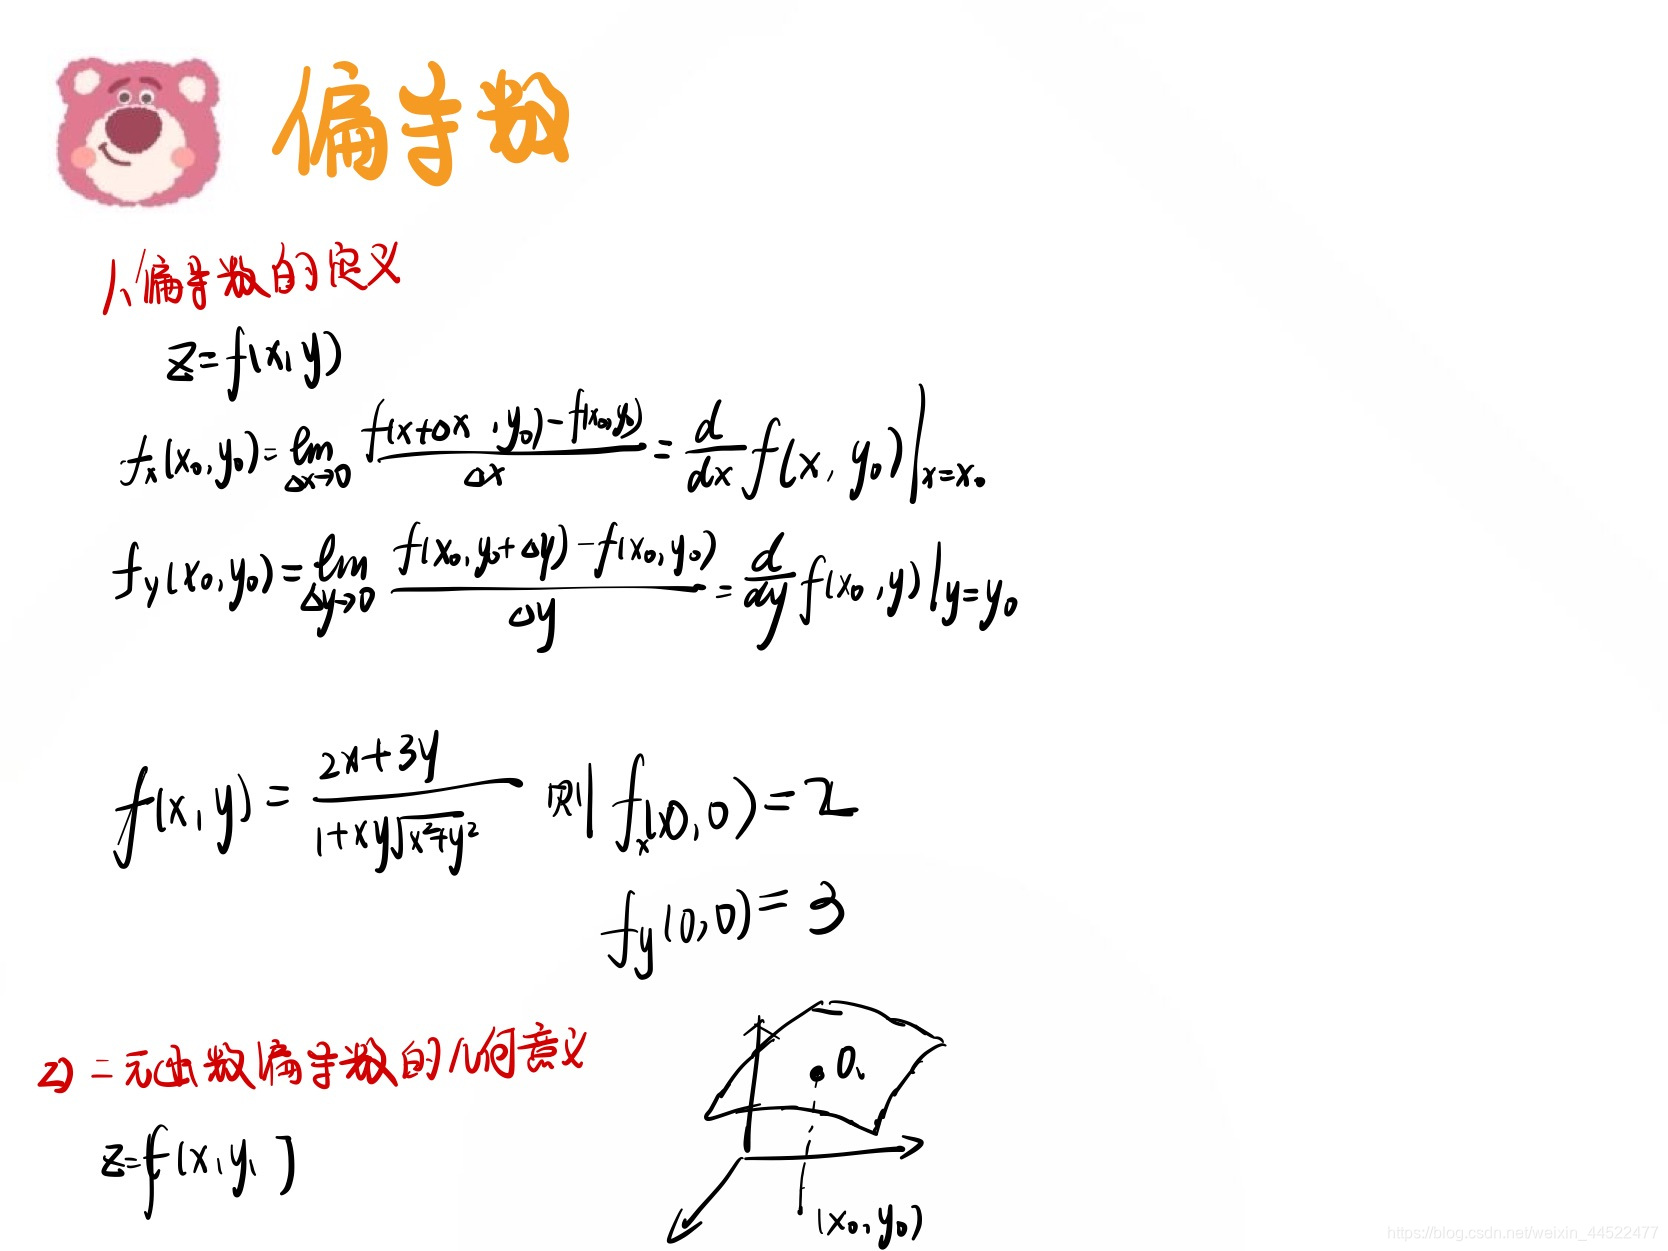 偏导数
1、偏导数的定义
z=f(x,y)
fₓ(x₀,y₀)=lim_{Δx→0} (f(x+Δx,y₀)-f(x₀,y₀))/Δx = d/dx f(x,y₀)|_{x=x₀}
f_y(x₀,y₀)=lim_{Δy→0} (f(x₀,y₀+Δy)-f(x₀,y₀))/Δy = d/dy f(x₀,y)|_{y=y₀}
f(x,y)= (2x+3y)/(1+xy√(x²+y²)) 则 fₓ(0,0)=2
f_y(0,0)=3
2) 二元函数偏导数的几何意义
0.
z=f(x,y,)
(x₀,y₀)
https://blog.csdn.net/weixin_44522477